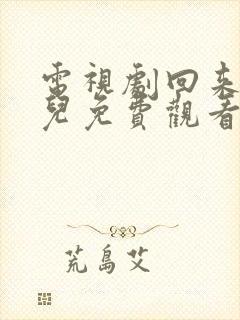 電視劇回來
兒免費觀看
荒島艾